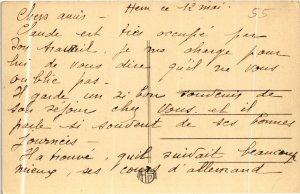 Hem ce 12 mai.
55
Chers amis -
Claude est très occupé par
son travail, je me charge pour
lui de vous dire qu'il ne vous
oublie pas -
Il garde un si bon souvenir de
son séjour chez vous, et il
parle si souvent de ses bonnes
journées -
Il a trouvé, qu'il suivait beaucoup
mieux, ses cours d'allemand